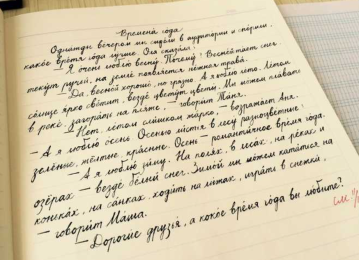 Времена года
Однажды вечером мы сидели в аудитории и спорили,
какое время года лучше. Оля сказала:
— Я очень люблю весну. Почему? Весной тает снег,
текут ручьи, на земле появляется нежная трава.
— Да, весной хорошо, но грязно. А я люблю лето. Летом
солнце ярко светит, везде цветут цветы. Мы можем плавать
в реке, загорать на пляже, — говорит Таня.
— Нет, летом слишком жарко, — возражает Аня.
— А я люблю осень. Осенью листья в лесу разноцветные:
зелёные, жёлтые, красные. Осень — романтичное время года.
— А я люблю зиму. На полях, в лесах, на реках и
озёрах — везде белый снег. Зимой мы можем кататься на
коньках, на санках, ходить на лыжах, играть в снежки,
— говорит Маша.
— Дорогие друзья, а какое время года вы любите?